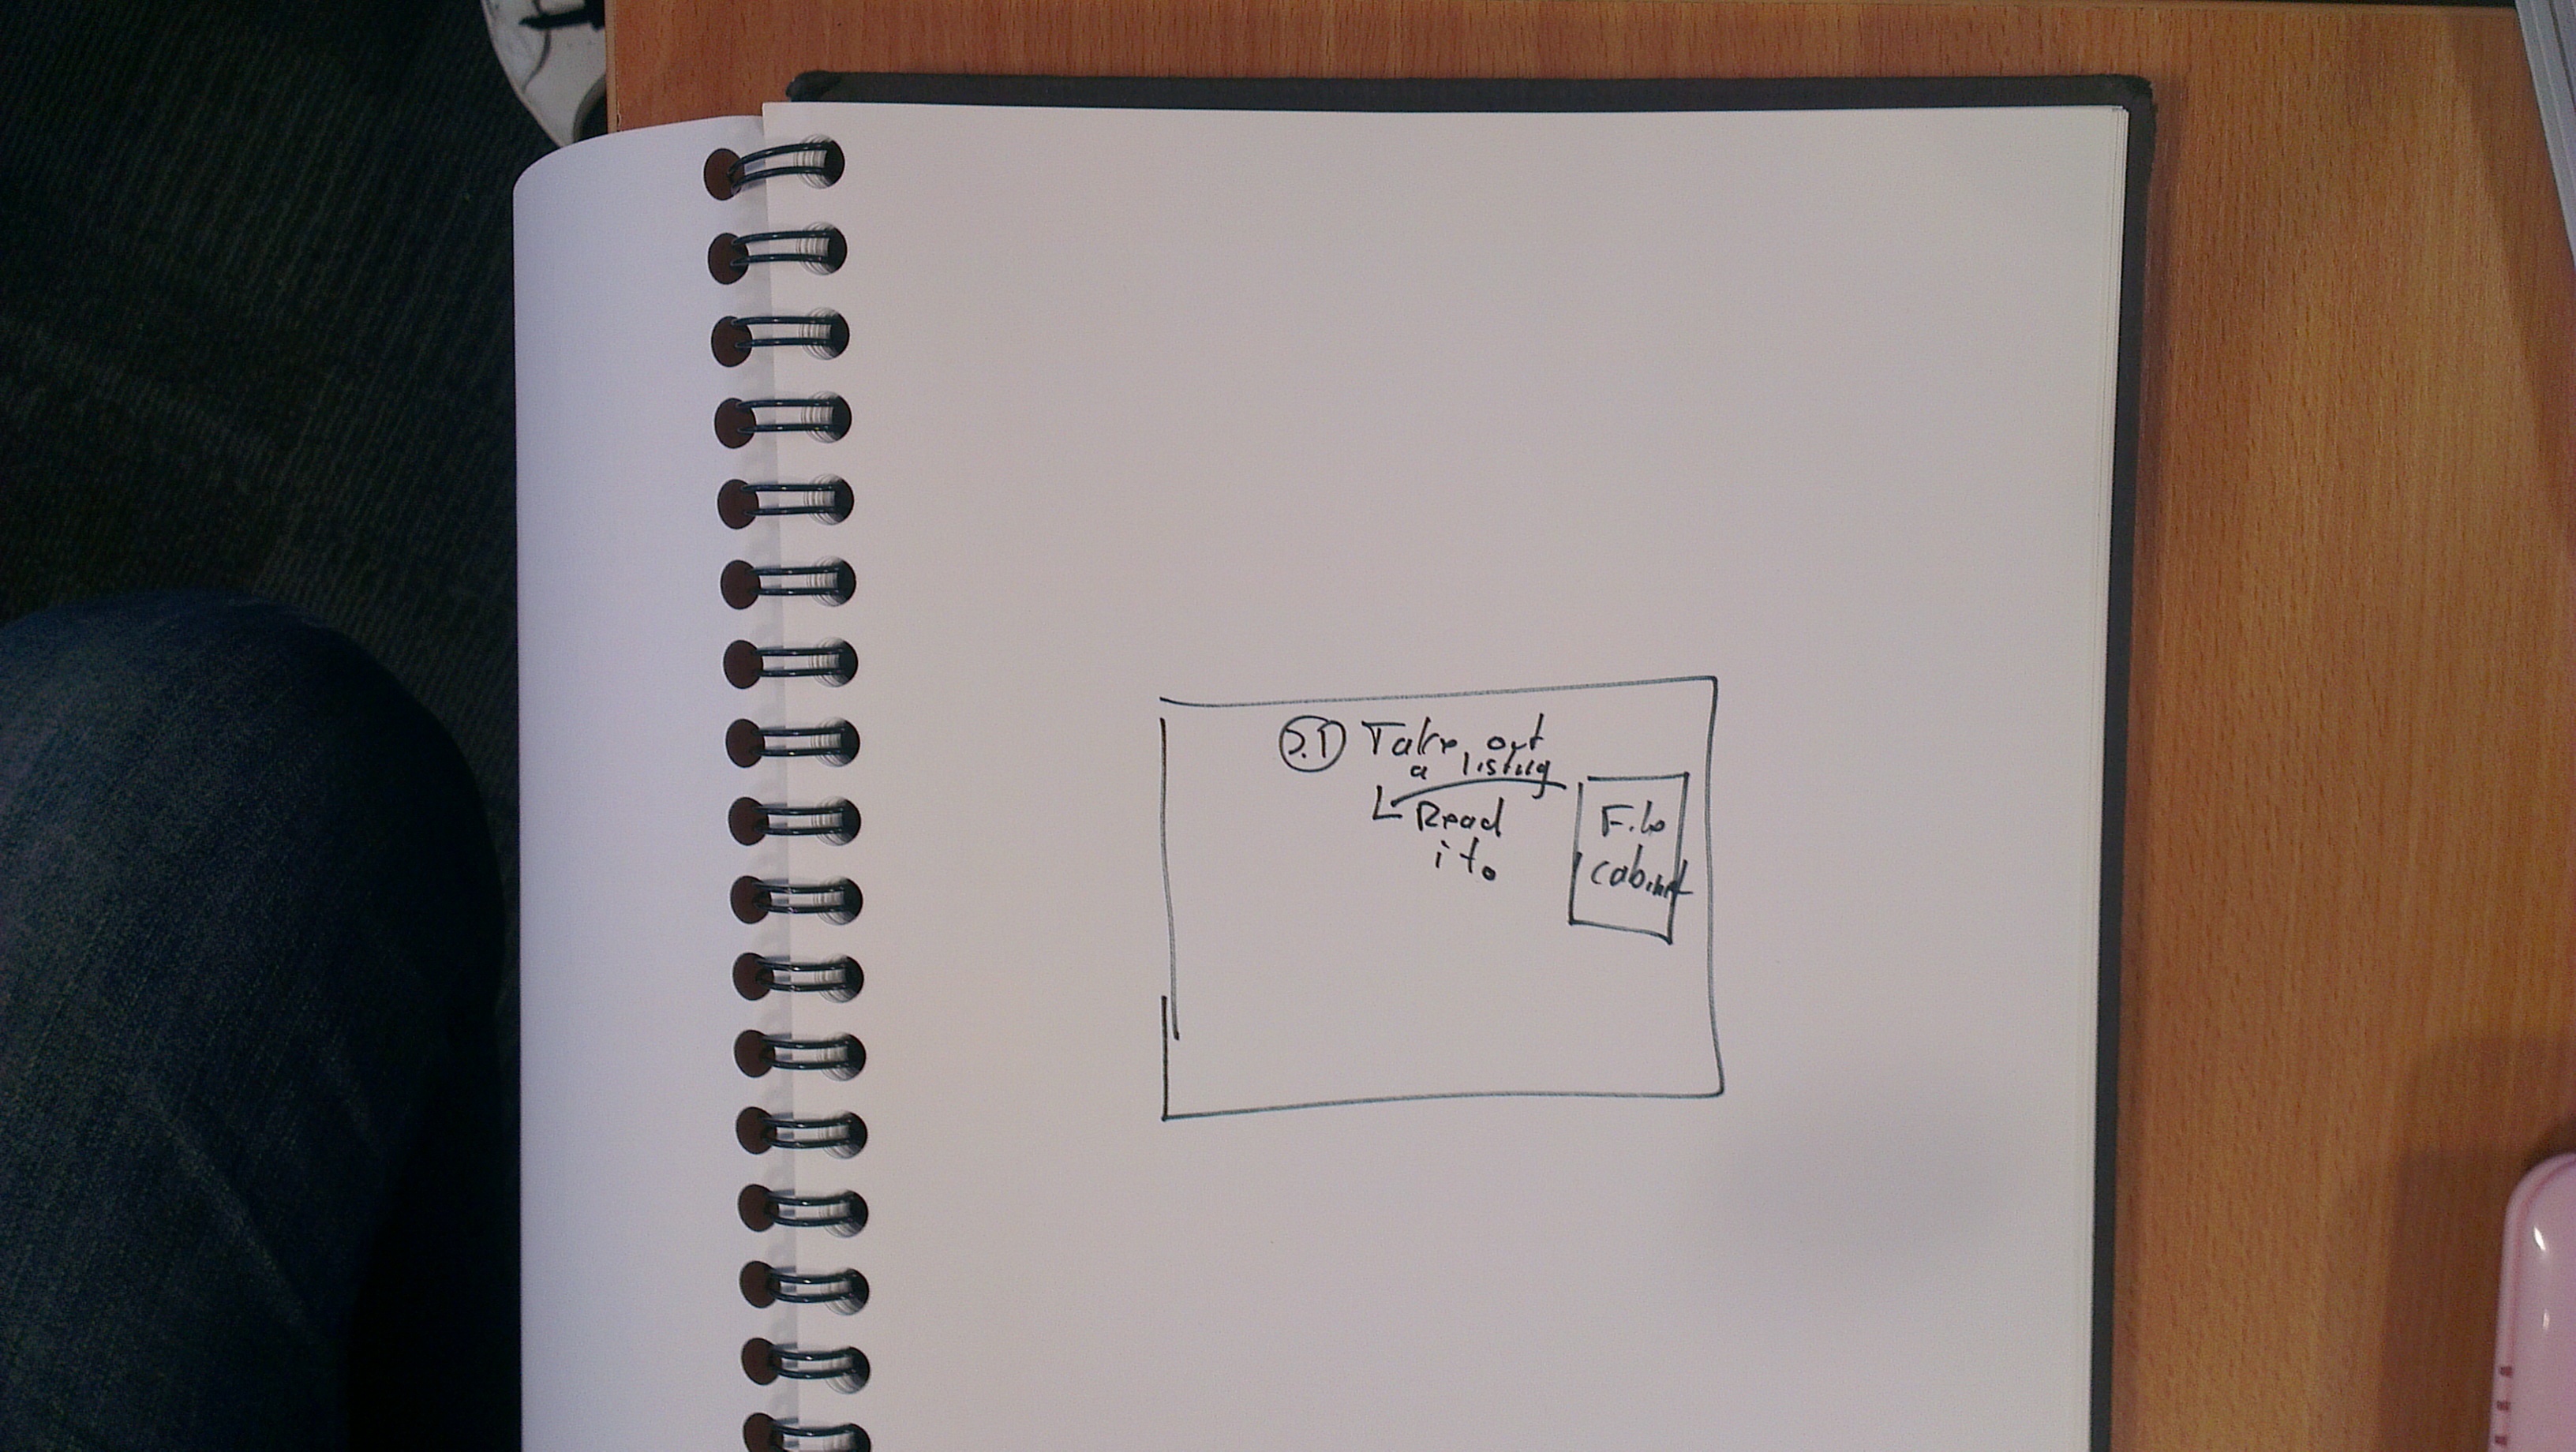 Take out
a listing
Read
it.
File
cabinet